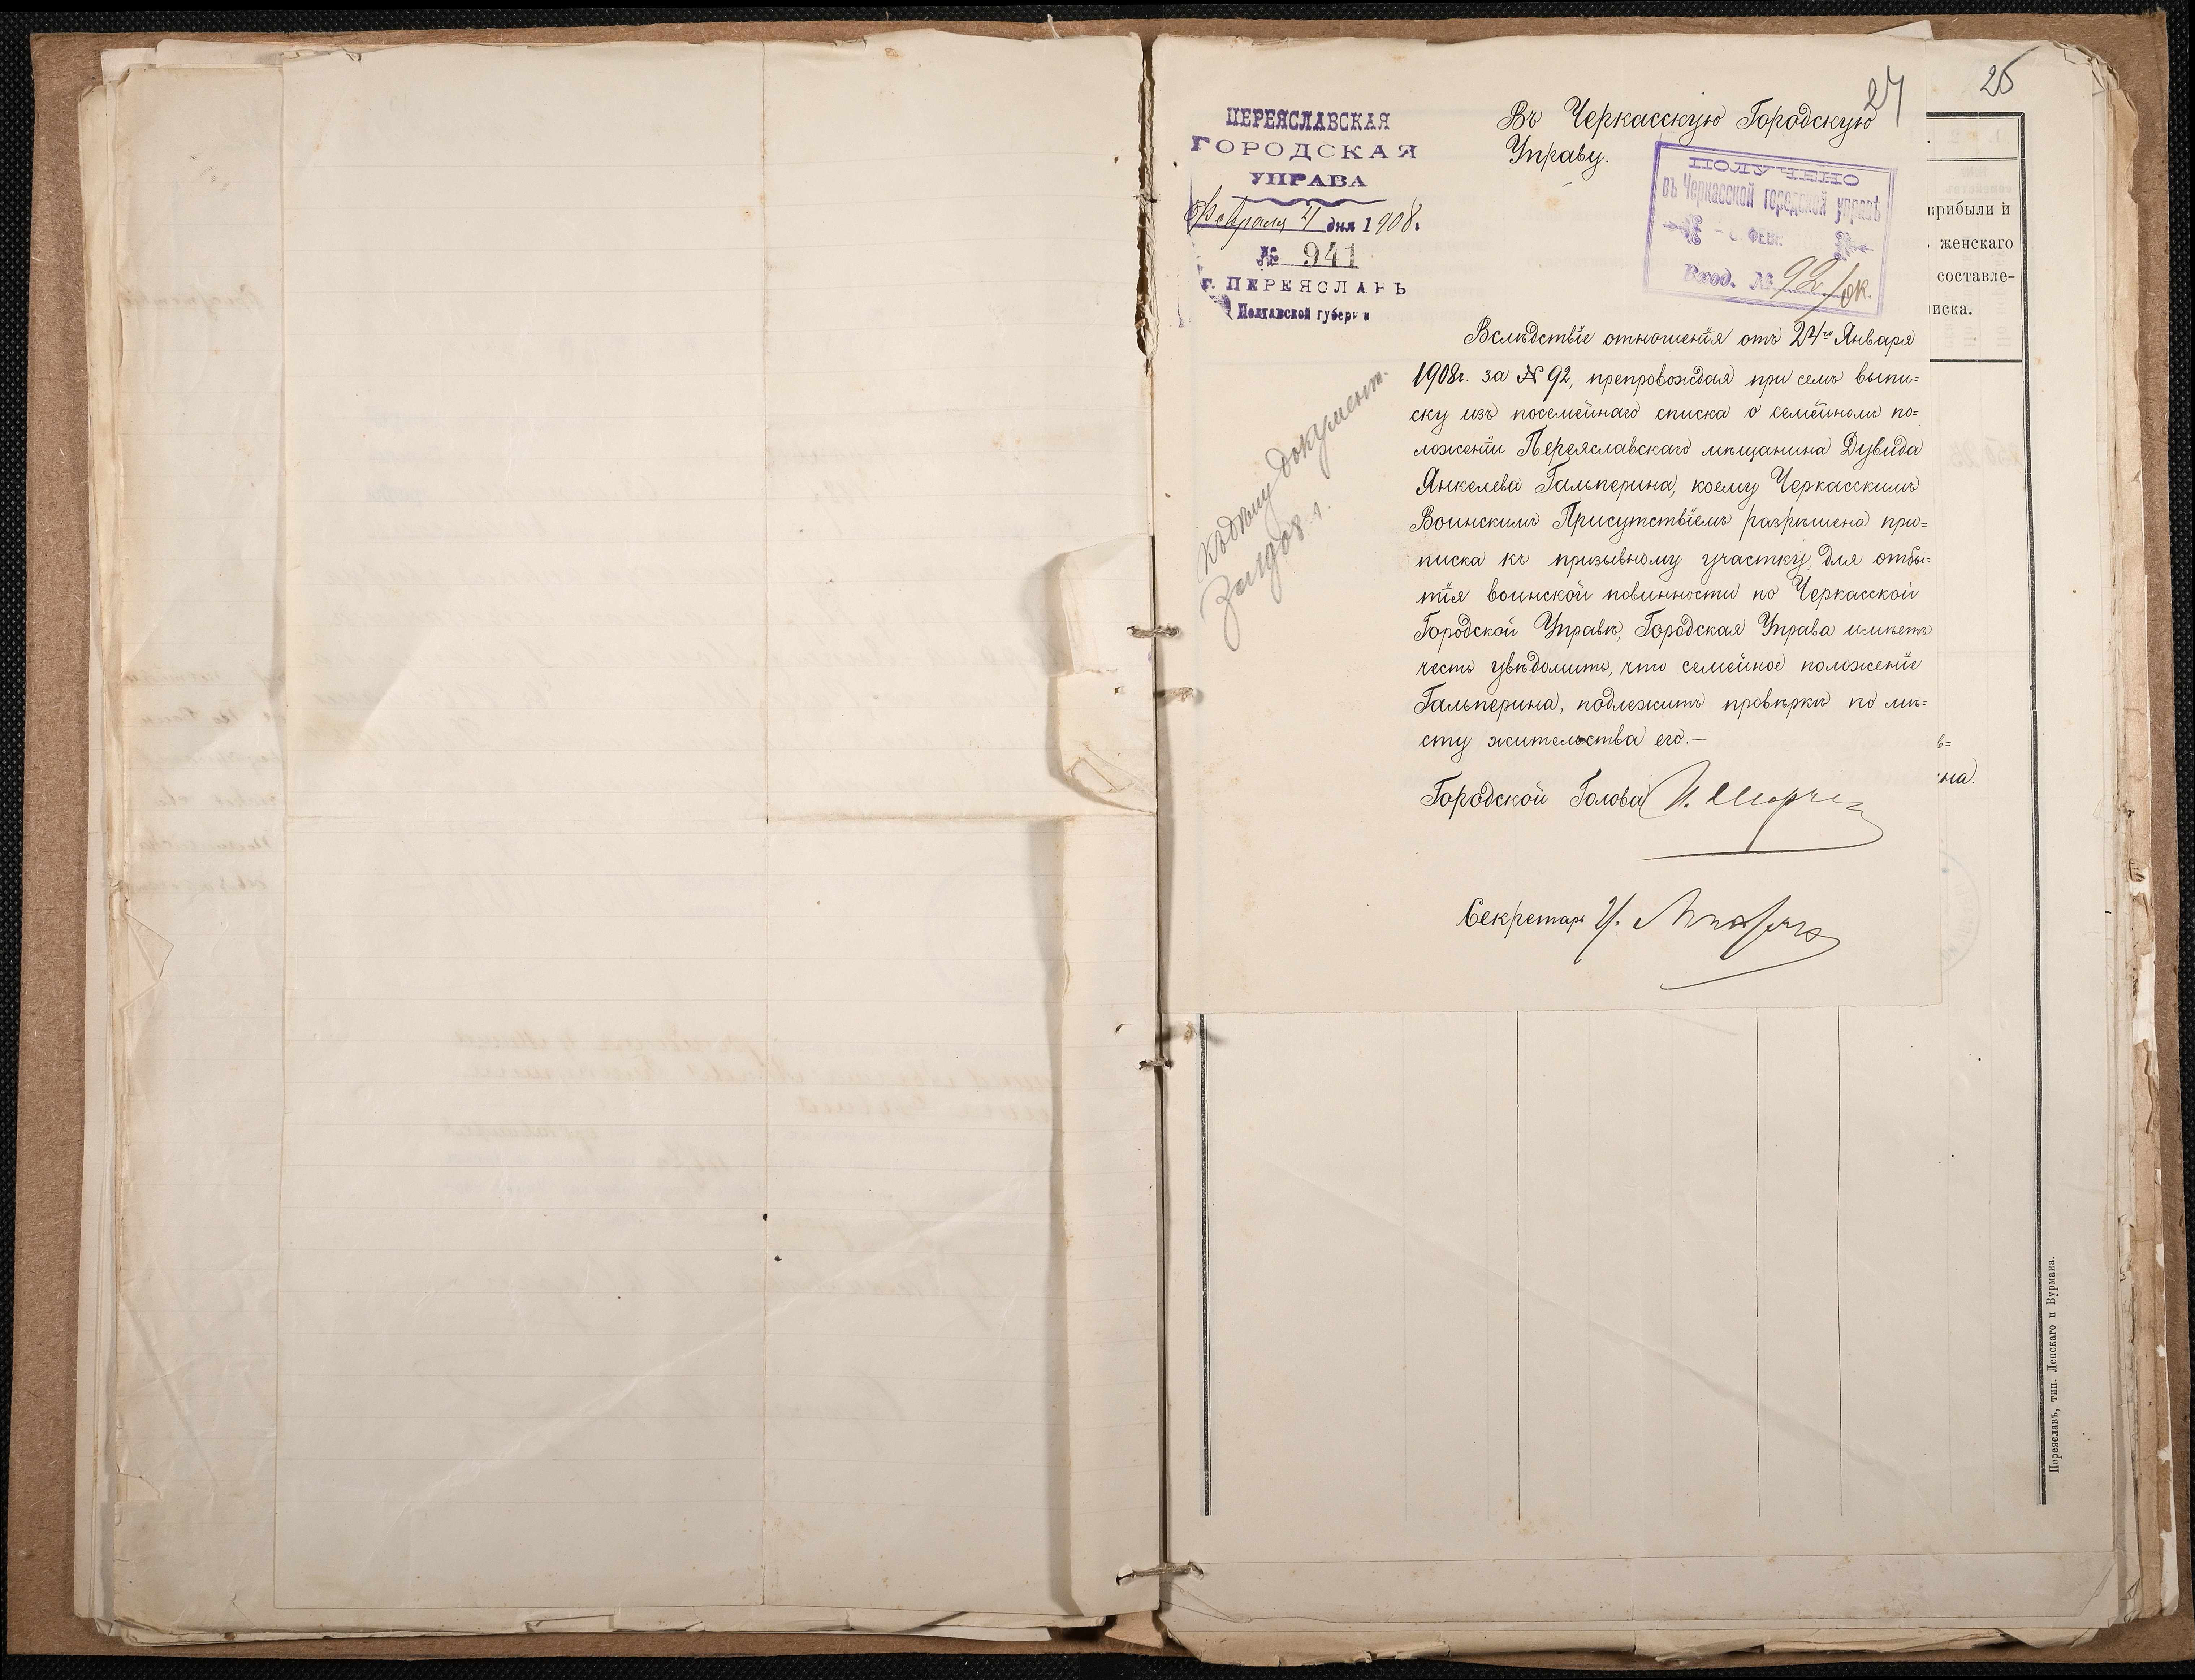 24
25
ПЕРЕЯСЛАВСКАЯ
ГОРОДСКАЯ
УПРАВА
Февраля 4 дня 1908.
№ 941
г. ПЕРЕЯСЛАВЪ
Полтавской губерн
Въ Черкасскую Городскую
Управу.
ПОЛУЧЕНО
въ Черкасской городской управѣ
ФЕВ
Вход. № 92/ок.
Вслѣдствіе отношенія отъ 24го Января
1908г. за № 92, препровождая при семъ выпи=
ску изъ посемейнаго списка о семейномъ по=
ложеніи Переяславскаго мѣщанина Дувида
Янкелева Гальперина, коему Черкасскимъ
Воинскимъ Присутствіемъ разрѣшена при=
писка къ призывному участку, для отбы=
тія воинской повинности по Черкасской
Городской Управѣ, Городская Управа имѣетъ
честь увѣдомить, что семейное положеніе
Гальперина, подлежитъ провѣркѣ по мѣ=
сту жительства его.—
Городской Голова
Секретарь
Къ дѣлу документ.
За 1908 г.
прибыли и
женскаго
составле-
иска.
в=
на.
Переяславъ, тип. Ленскаго и Вурмана.